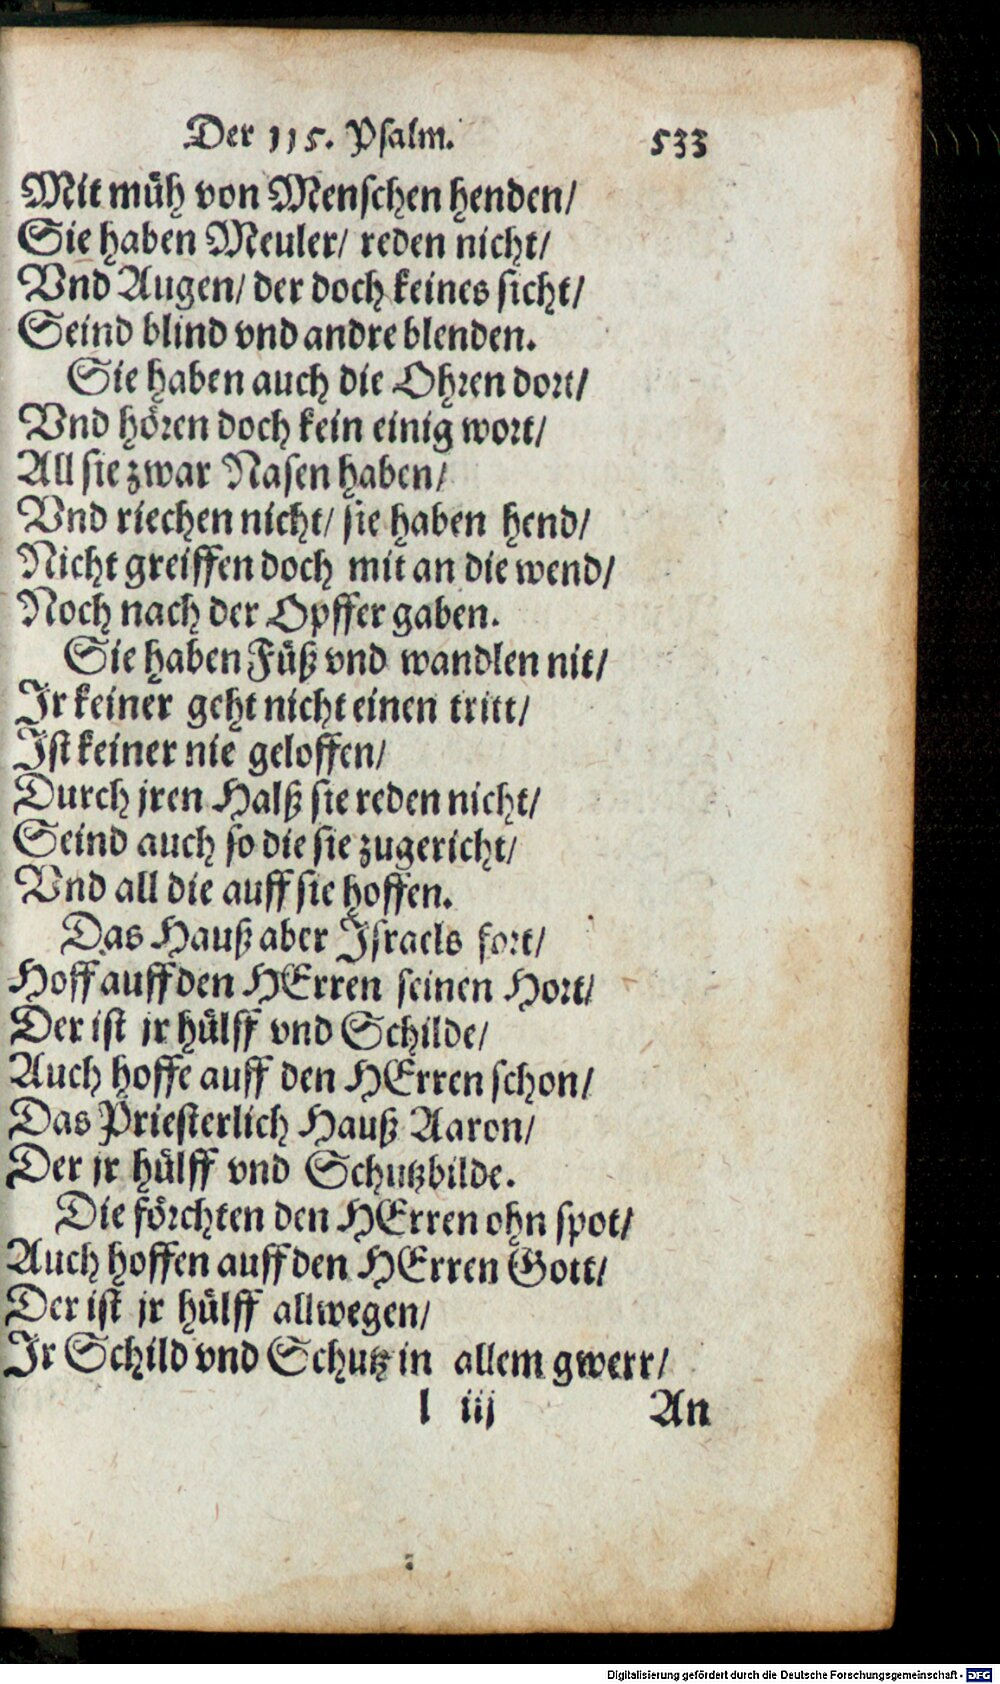 Der 115. Psalm. 533
Mit müh von Menschen henden/
Sie haben Meuler/ reden nicht/
Vnd Augen/ der doch keines sicht/
Seind blind vnd andre blenden.
Sie haben auch die Ohren dort/
Vnd hören doch kein einig wort/
All sie zwar Nasen haben/
Vnd riechen nicht/ sie haben hend/
Nicht greiffen doch mit an die wend/
Noch nach der Opffer gaben.
Sie haben Füß vnd wandlen nit/
Jr keiner geht nicht einen tritt/
Jst keiner nie geloffen/
Durch jren Halß sie reden nicht/
Seind auch so die sie zugericht/
Vnd all die auff sie hoffen.
Das Hauß aber Jsraels fort/
Hoff auff den HErren seinen Hort/
Der ist jr hülff vnd Schilde/
Auch hoffe auff den HErren schon/
Das Priesterlich Hauß Aaron/
Der jr hülff vnd Schutzbilde.
Die förchten den HErren ohn spot/
Auch hoffen auff den HErren Gott/
Der ist jr hülff allwegen/
Jr Schild vnd Schutz in allem gwerr/
l iij An
Digitalisierung gefördert durch die Deutsche Forschungsgemeinschaft - DFG